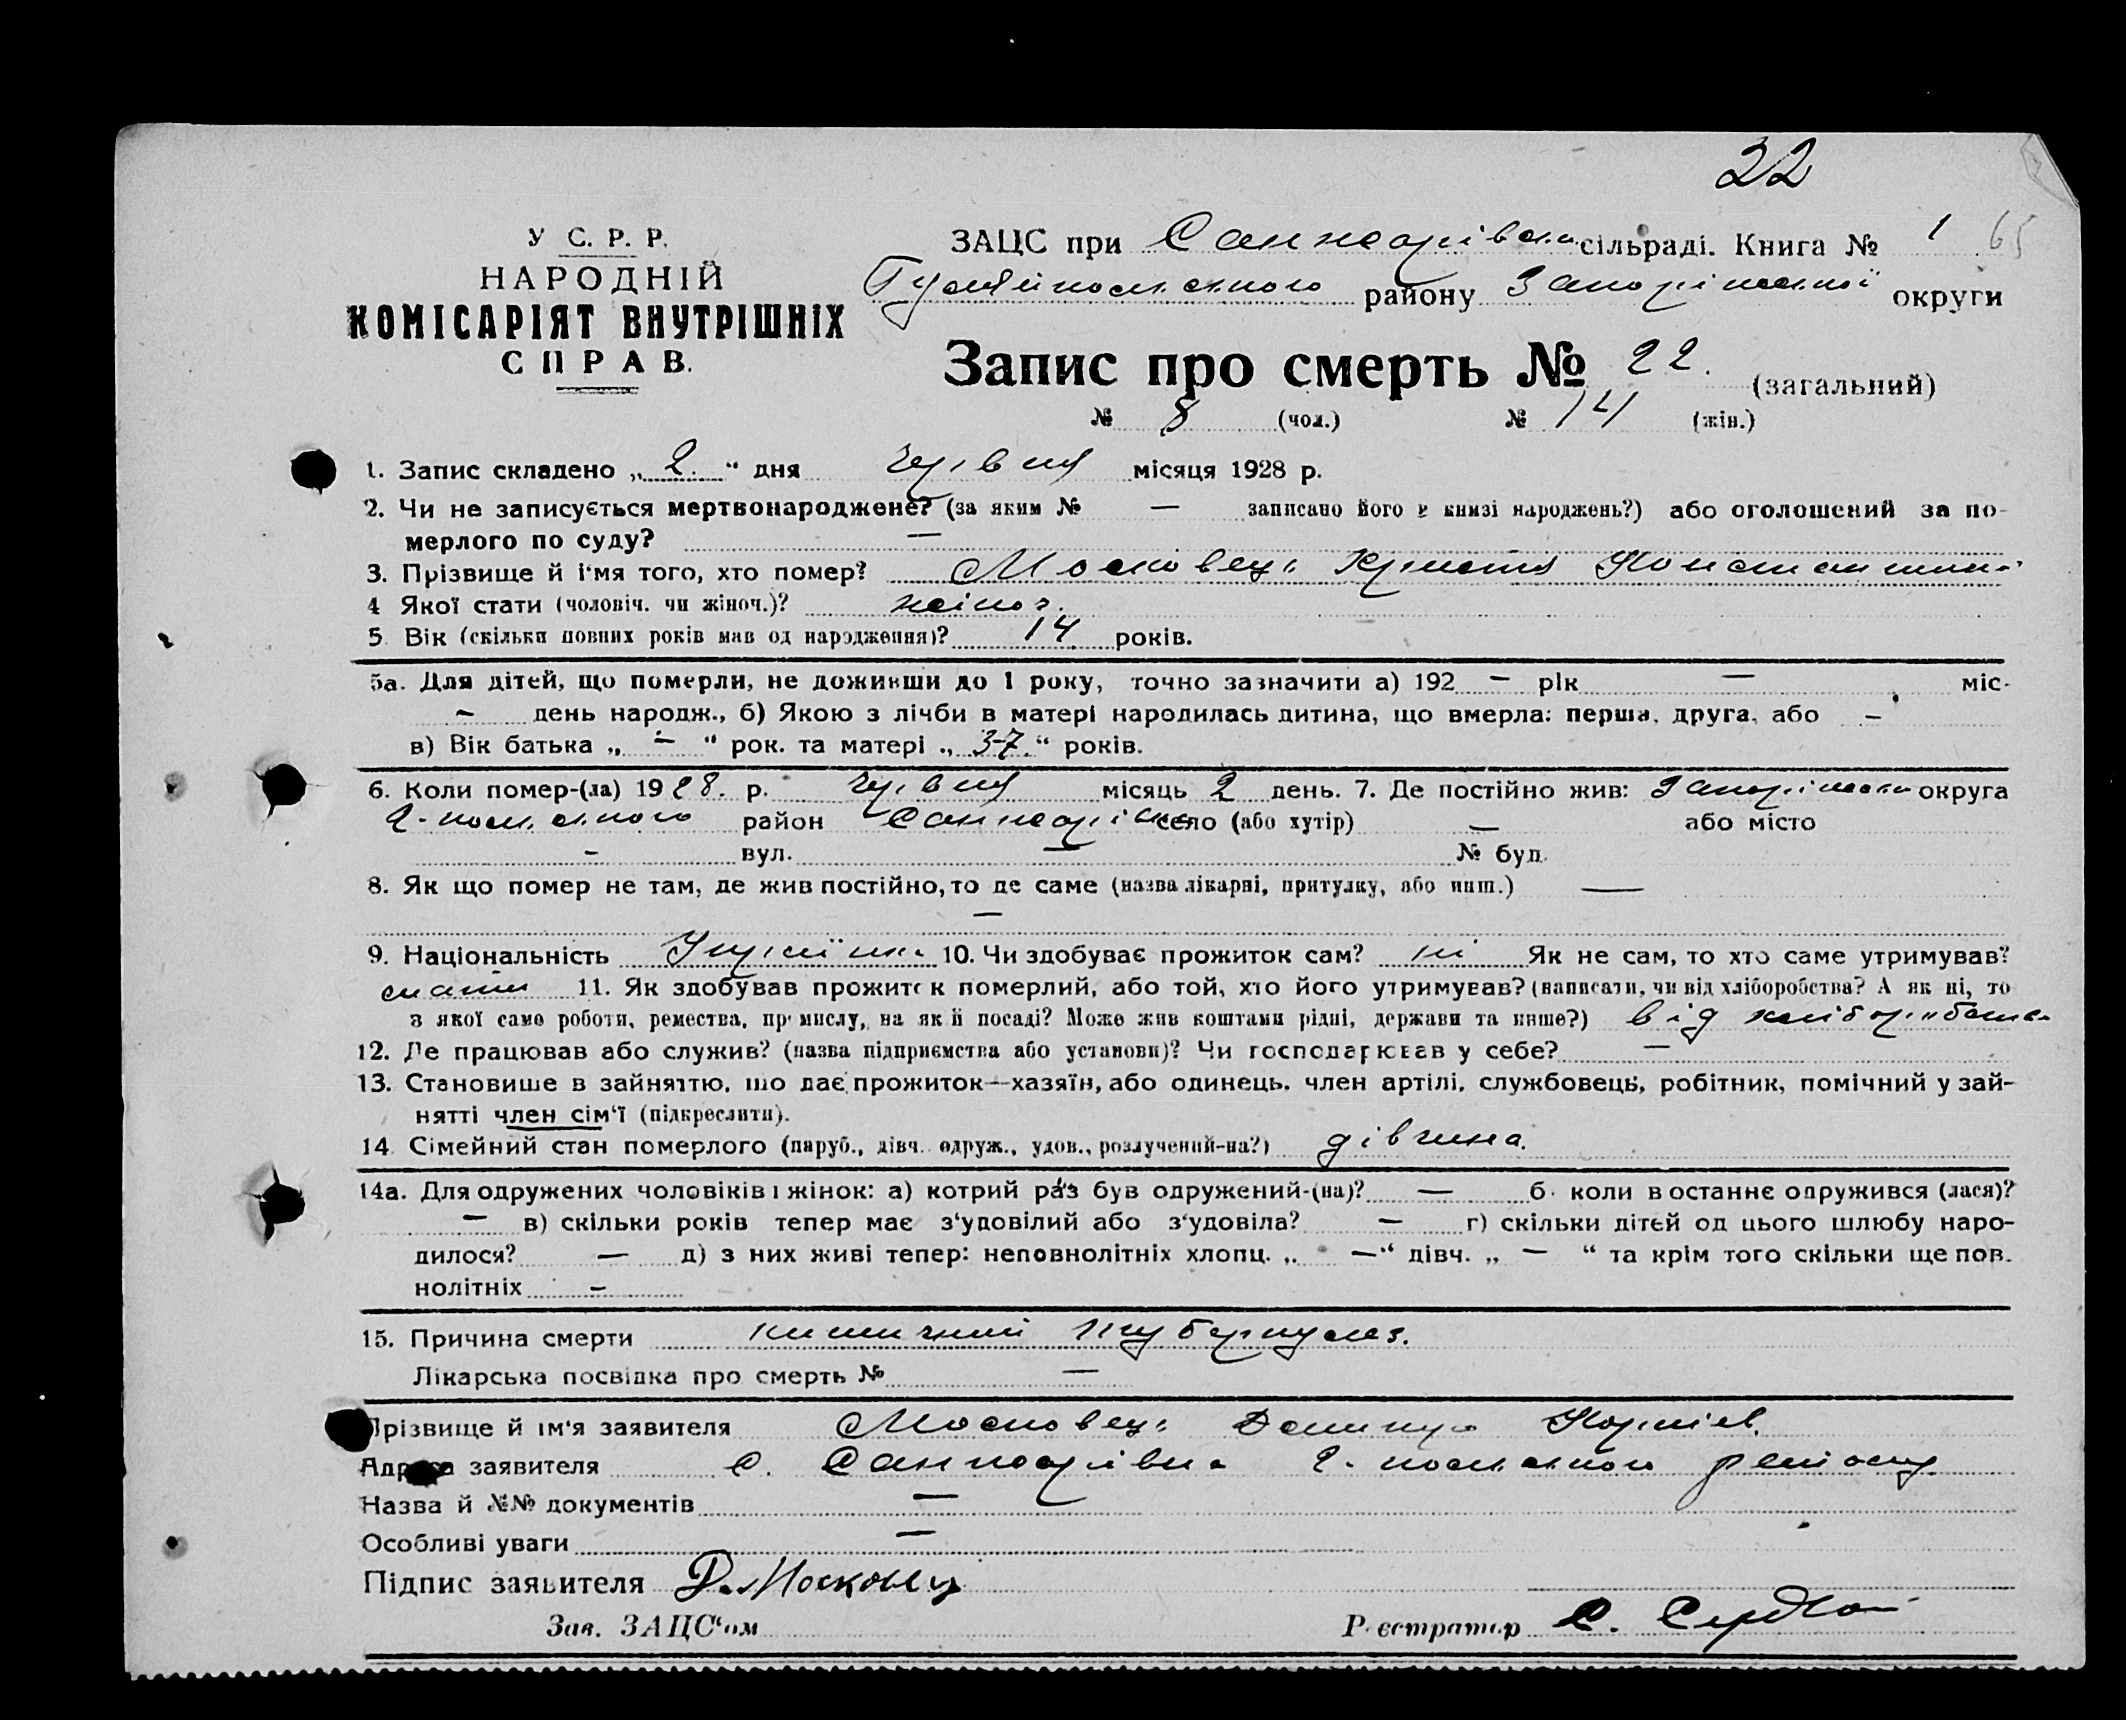 32
У С. Р. Р.
НАРОДНІЙ
КОМІСАРІЯТ ВНУТРІШНІХ
СПРАВ.
ЗАЦС при Санжарівськ. сільраді. Книга № 1 65
Гуляйпольського району Запоріжської округи
Запис про смерть № 22. (загальний)
№ 8 (чол.) № 14 (жін.)
1. Запис складено „ 2. “ дня червня місяця 1928 р.
2. Чи не записується мертвонароджене? (за яким № — записано його в книзі народжень?) або оголошений за по-
мерлого по суду? —
3. Прізвище й і'мя того, хто помер? Московець Константин
4 Якої стати (чоловіч. чи жіноч.)? жіноч.
5. Вік (скільки повних років мав од народження)? 14 років.
5а. Для дітей, що померли, не доживши до 1 року, точно зазначити а) 192 — рік — міс-
— день народж., б) Якою з лічби в матері народилась дитина, що вмерла: перша, друга, або —
в) Вік батька „ — “ рок. та матері „ 37. “ років.
6. Коли помер-(ла) 1928. р. червня місяць 2 день. 7. Де постійно жив: Запоріжськ округа
Г-польського район Санжарівка село (або хутір) — або місто
— вул. — № буд.
8. Як що помер не там, де жив постійно, то де саме (назва лікарні, притулку, або инш.) —
—
9. Національність Українка 10. Чи здобуває прожиток сам? ні Як не сам, то хто саме утримував?
мати 11. Як здобував прожиток померлий, або той, хто його утримував? (написати, чи від хліборобства? А як ні, то
з якої саме роботи, ремества, промислу, на якій посаді? Може жив коштами рідні, держави та инше?) від хліборобства
12. Де працював або служив? (назва підприємства або установи)? Чи господарював у себе? —
13. Становище в зайняттю, що дає прожиток—хазяїн, або одинець, член артілі, службовець, робітник, помічний у зай-
нятті член сім'ї (підкреслити).
14. Сімейний стан померлого (паруб., дівч. одруж., удов., розлучений-на?) дівчина.
14а. Для одружених чоловіків і жінок: а) котрий раз був одружений-(на)? — б. коли востаннє одружився (лася)?
— в) скільки років тепер має з'удовілий або з'удовіла? — г) скільки дітей од цього шлюбу наро-
дилося? — д) з них живі тепер: неповнолітніх хлопц. „ — “ дівч. „ — “ та крім того скільки ще пов.
нолітніх —
15. Причина смерти кишечний туберкульоз.
Лікарська посвідка про смерть № —
Прізвище й ім'я заявителя Московець Корнієв.
Адреса заявителя с. Санжарівка Г-польського району
Назва й №№ документів —
Особливі уваги —
Підпис заявителя Д. Московец
Зав. ЗАЦС'ом
Реєстратор С.